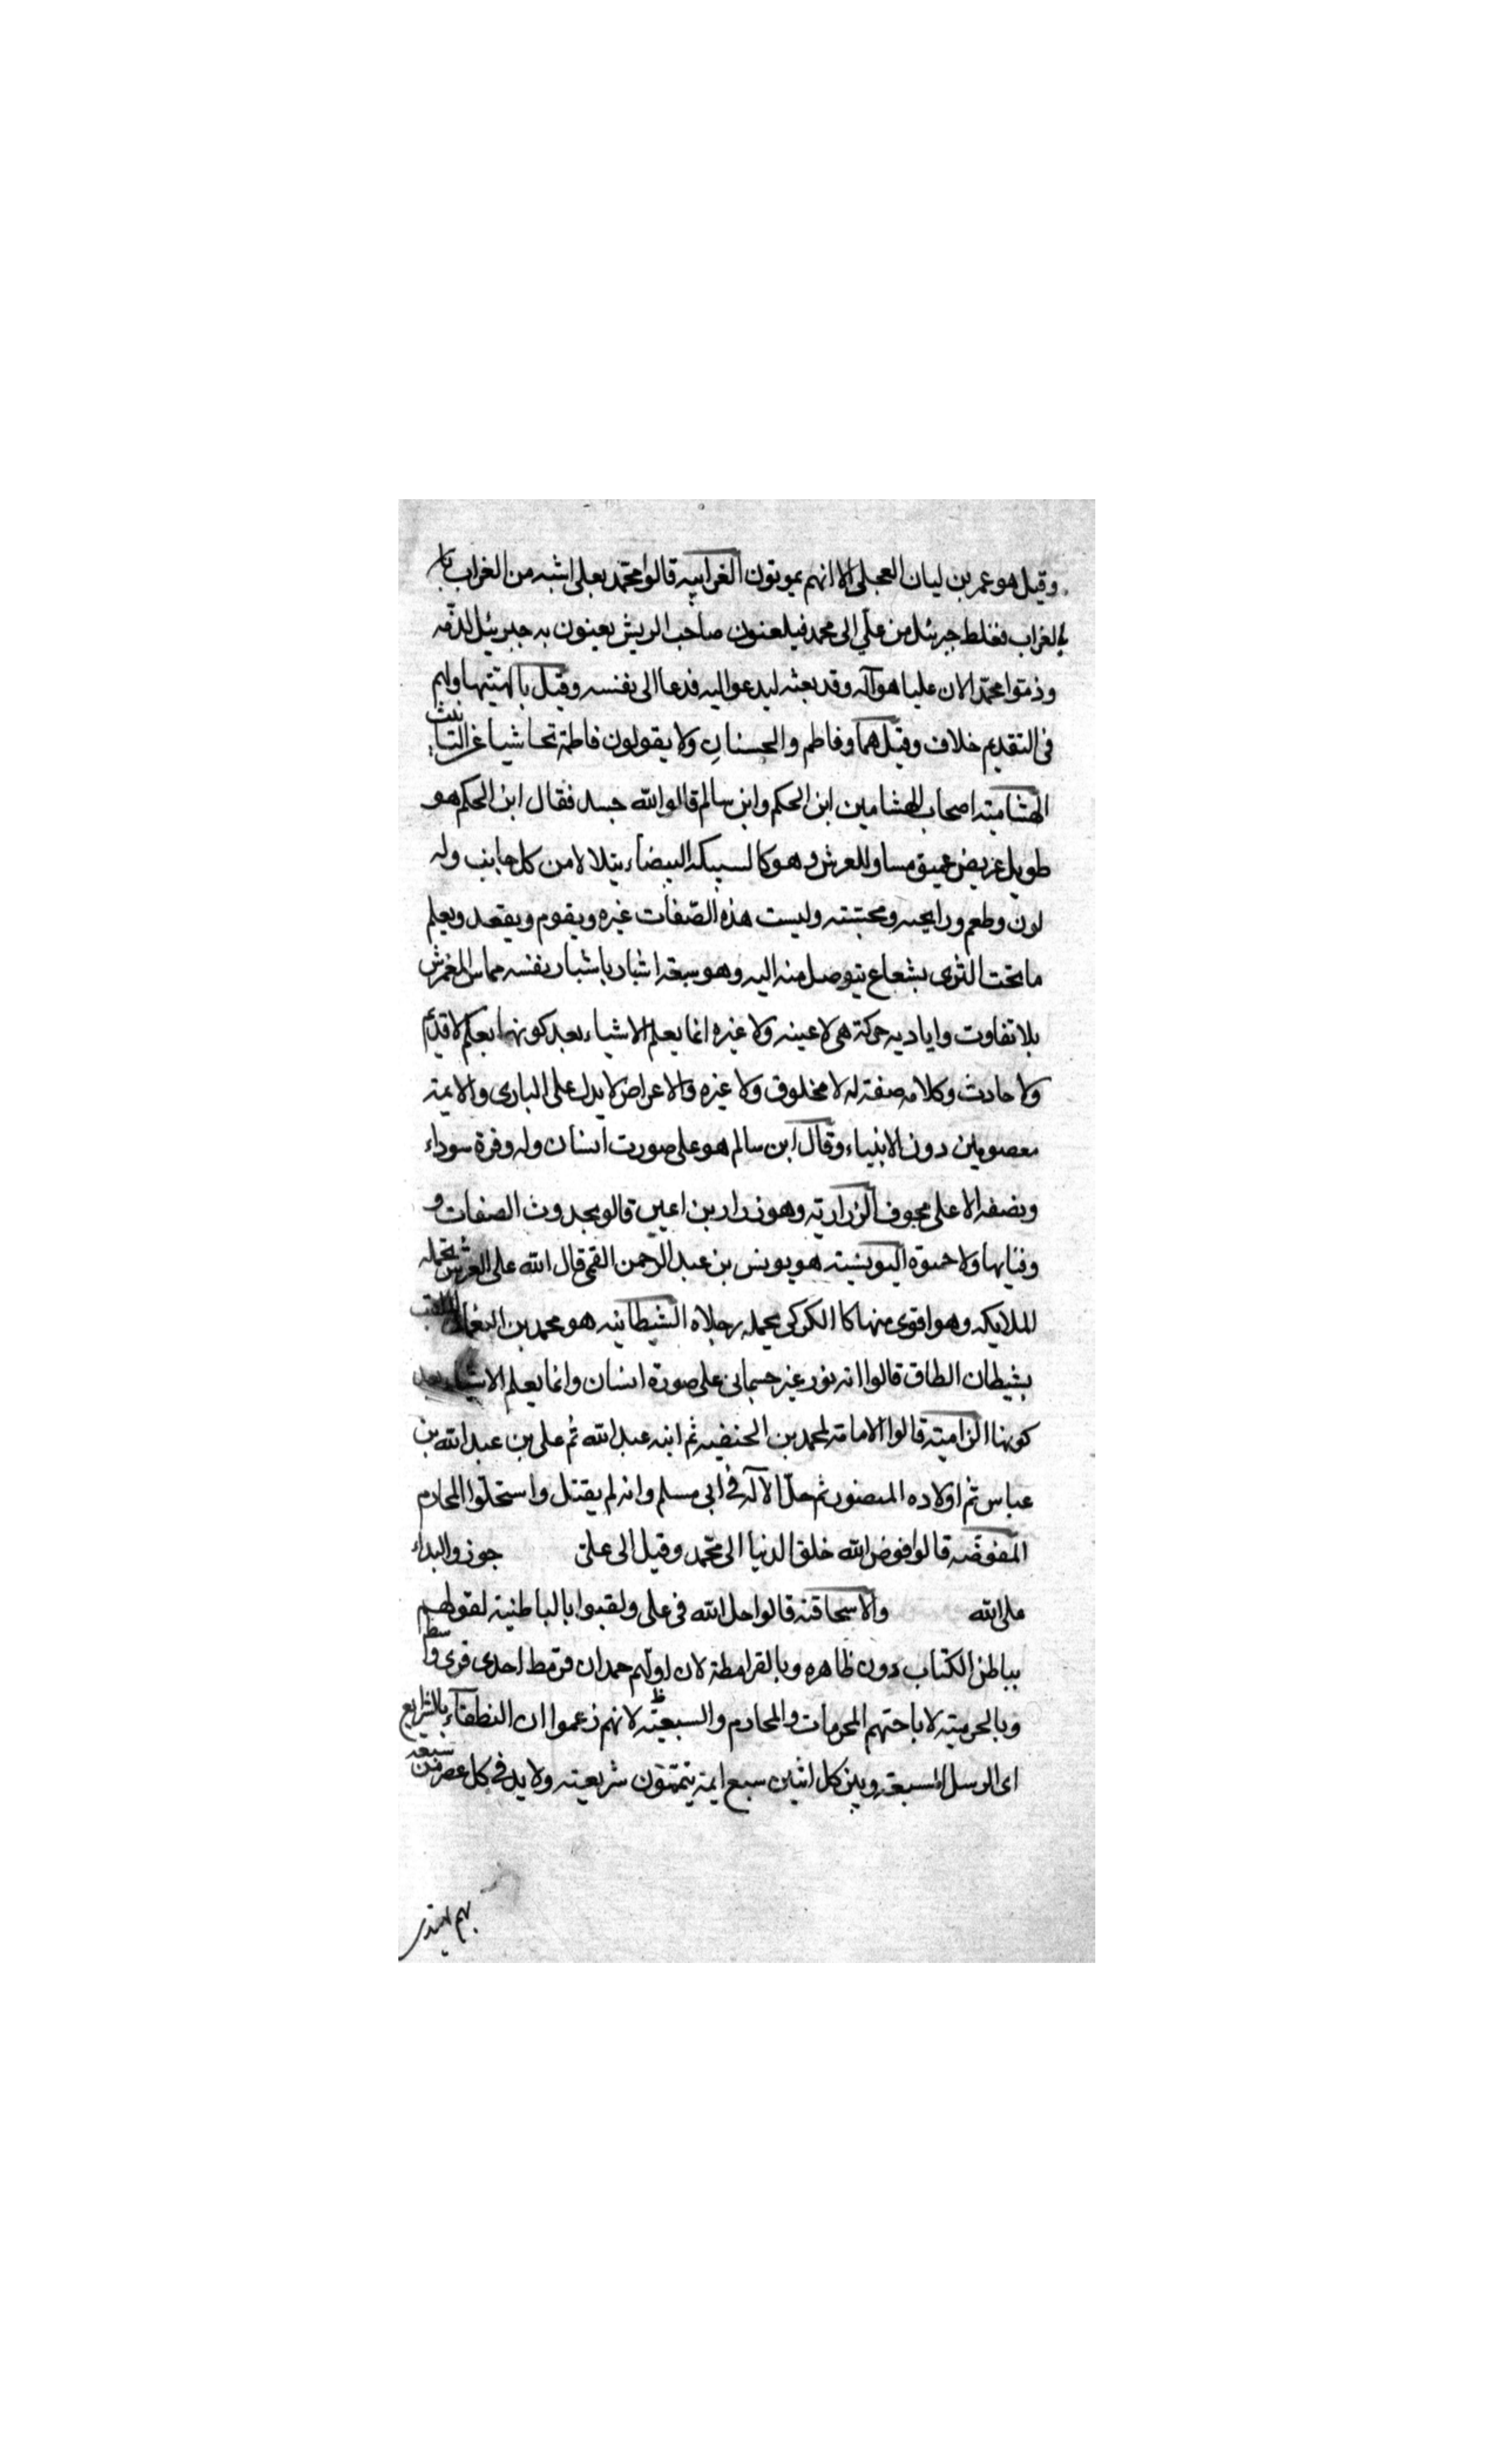 وقيل هو عمر بن لبان العجلي الا انهم يموتون الغرابيه قالوا محمد بعلي اشبه من الغراب
بالغراب فغلط جبرئيل من علي الى محمد فيلعنون صاحب الريش يعنون به جبرئيل الذمه
وذموا محمدا لان عليا هو آله وقد بعثه ليدعو اليه فدعا الى نفسه وقيل بالهيتهما ولهم
في التقديم خلاف وقيل هما وفاطم والحسنان ولا يقولون فاطمة تحاشيا عن التانيث
الهشاميه اصحاب الهشامين ابن الحكم وابن سالم قالوا الله جسد فقال ابن الحكم هو
طويل عريض عميق مساو للعرش وهو كالسبيكه البيضاء يتلالا من كل جانب وله
لون وطعم ورايحه ومحبسته وليست هذه الصفات غيره ويقوم ويقعد ويعلم
ما تحت الثرى بشعاع يتوصل منه اليه وهو سبعة اشبار باشبار نفسه مماس للعرش
بلا تفاوت وايادیه حركة هي لا عينه ولا غيره انما يعلم الاشياء بعد كونها بعلم لا قديم
ولا حادث وكلامه صفة له لا مخلوق ولا غيره والاعراض لا يدل على الباري والايمة
معصومين دون الانبياء وقال ابن سالم هو على صورت انسان وله وفرة سوداء
ونصفه الاعلى مجوف الزراريه وهو زرار بن اعين قالو بحدوث الصفات و
وفنايها ولا حيوة اليونسيه هو يونس بن عبد الرحمن القمي قال الله على العرش تحمله
الملايكه وهو اقوى منها كا الكركي يحمله رجلاه الشيطانيه هو محمد بن النعمان الملقب
بشيطان الطاق قالوا انه نور غير جسماني على صورة انسان وانما يعلم الاشياء بعد
كونها الزاميه قالوا الامامة لمحمد بن الحنفيه ثم ابنه عبد الله ثم علي بن عبد الله بن
عباس ثم اولاده المنصور ثم حل الآله في ابي مسلم وانه لم يقتل واستحلوا المحارم
المفوضه قالوا فوض الله خلق الدنيا الى محمد وقيل الى علي جوزو البداء
على الله والاسحاقيه قالوا حل الله في علي ولقبوا بالباطنية لقولهم
بباطن الكتاب دون ظاهره وبالقرامطة لان اولهم حمدان قرمط احدى قرى واسط
وبالحرميه لاباحتهم المحرمات والمحارم والسبعيه لانهم زعموا ان النطقاء بالشرايع
اى الرسل السبعة وبين كل اثنين سبع ايمة يتممون شريعته ولابد في كل عصر من سبعة
بهم يهتدى